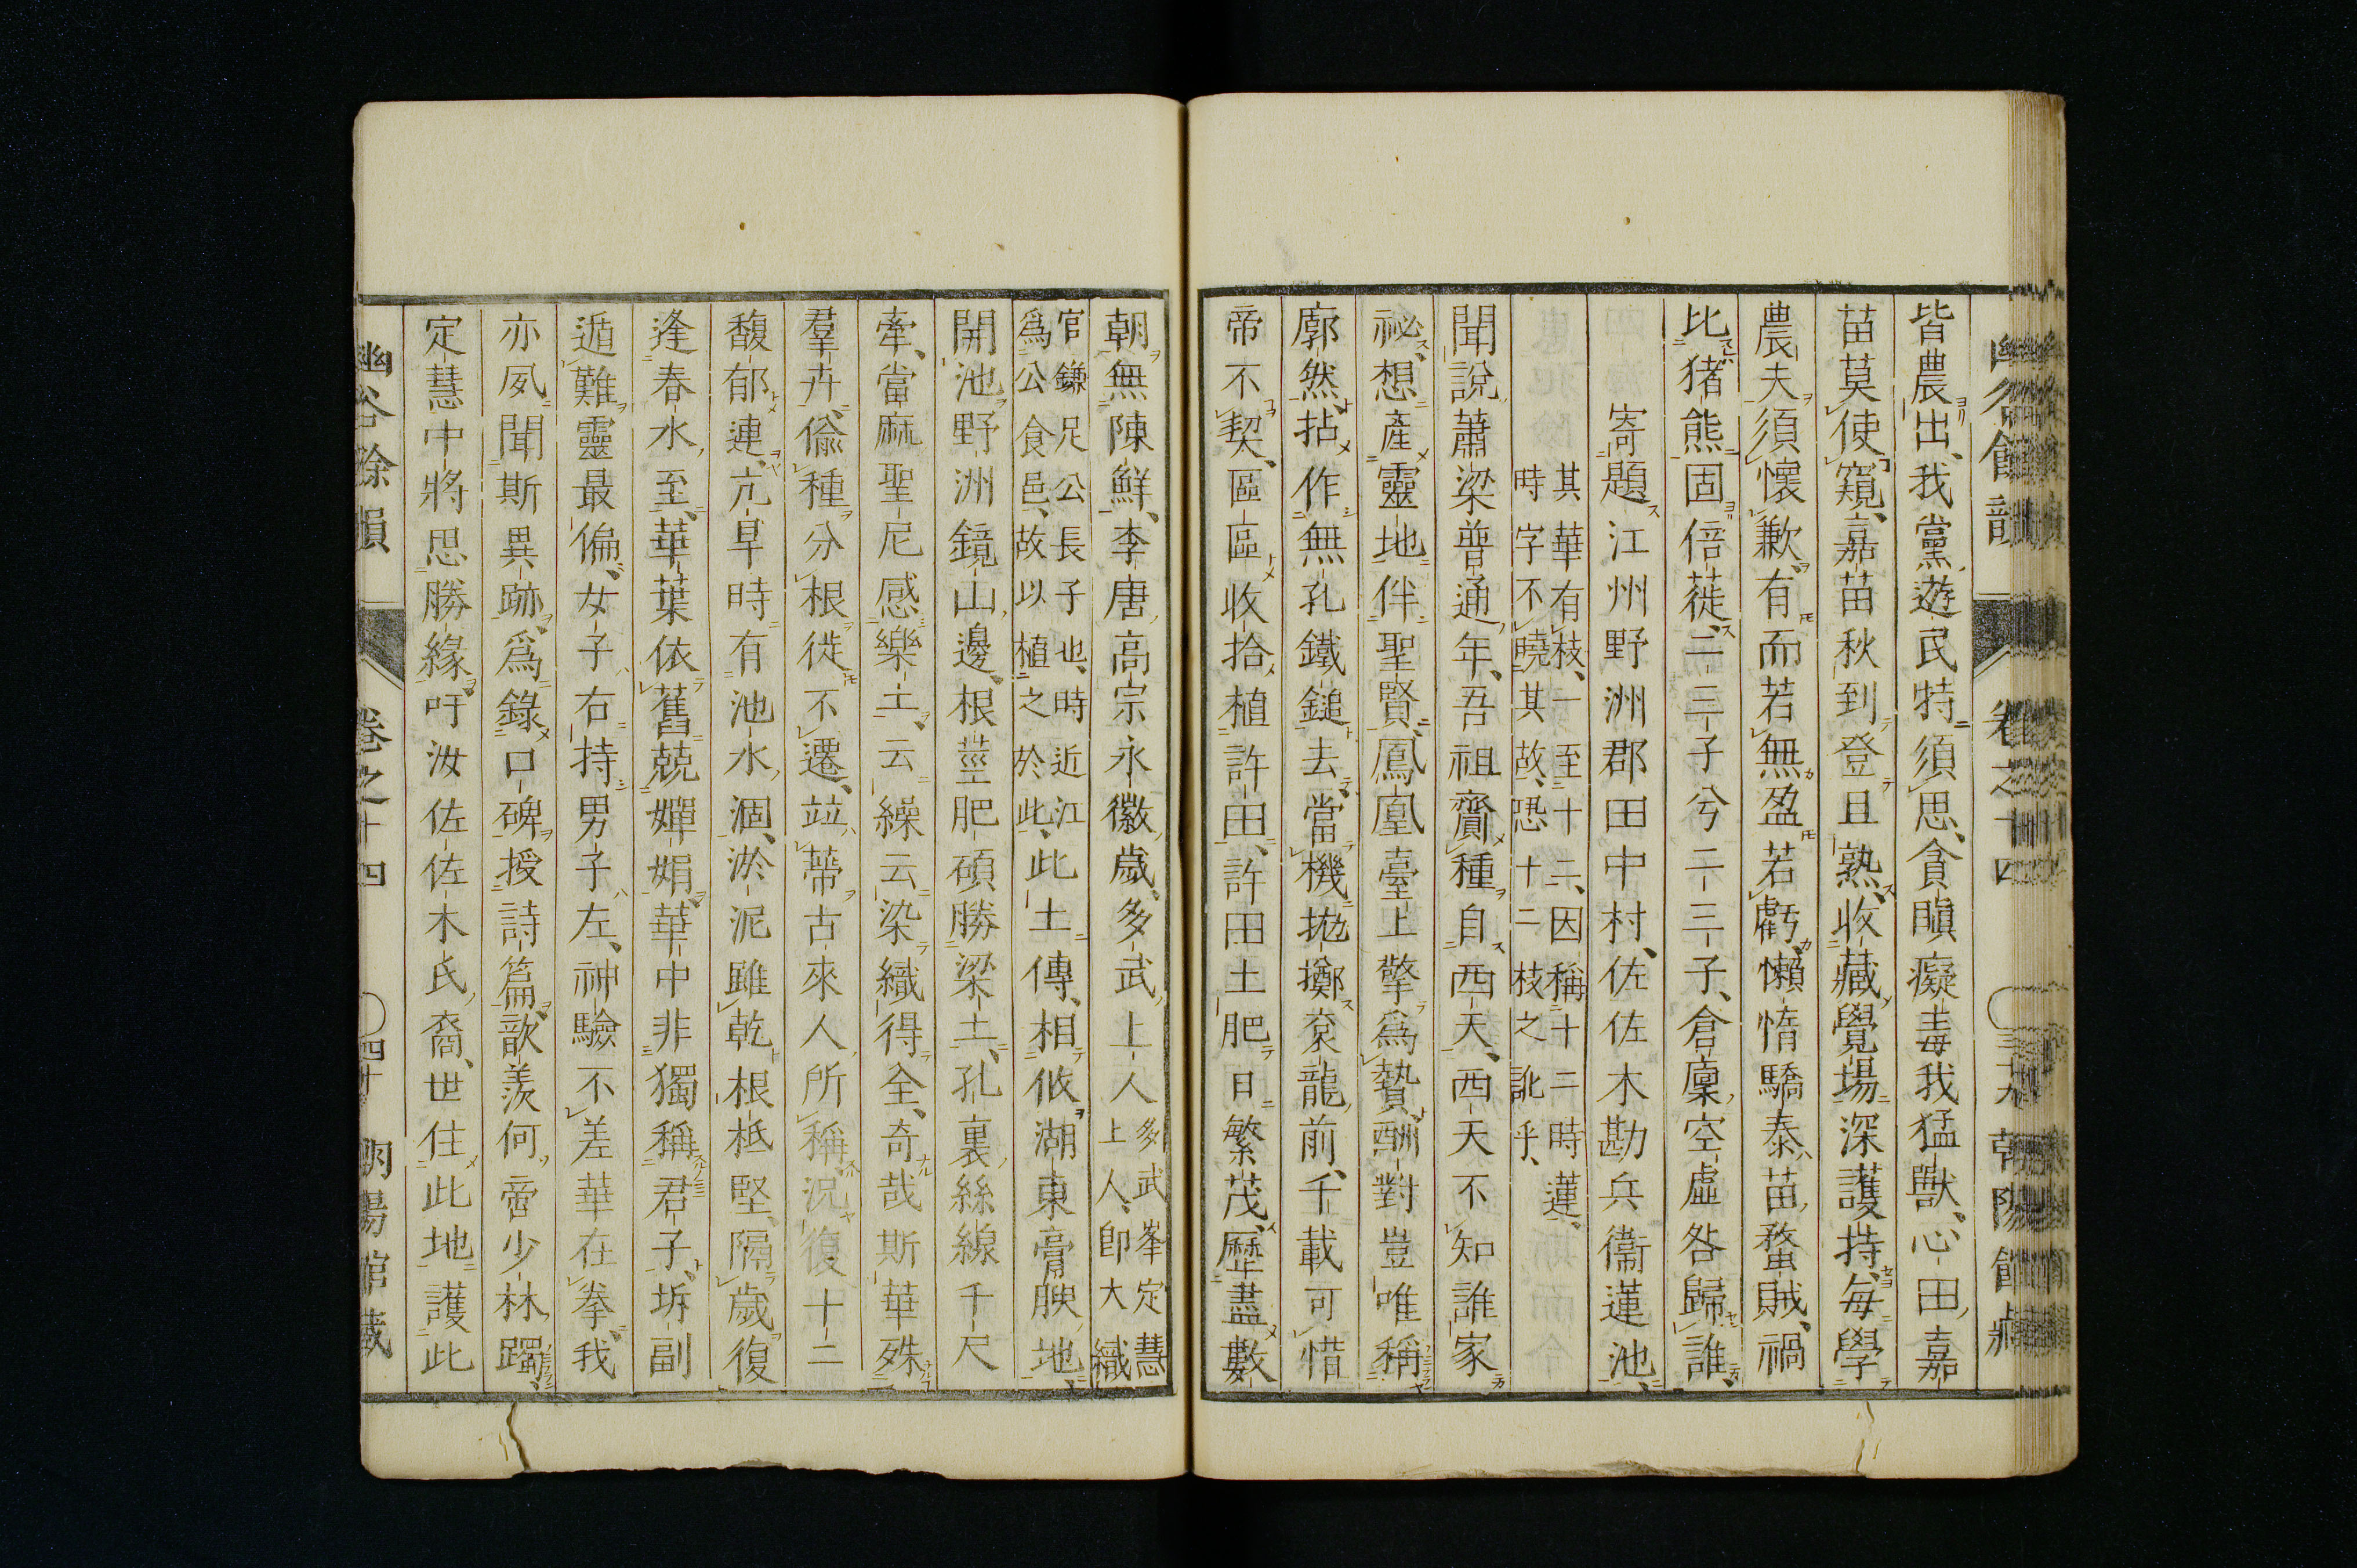 皆農出、我黨遊民特須思、貪瞋癡毒我猛獸、心田嘉
苗莫使窺、嘉苗秋到登且熟、收藏覺場深護持、每學
農夫須懷歉、有而若無盈若虧、懶惰驕泰苗蝥賊、禍
比猪熊固倍蓰、二三子兮二三子、倉廩空虛咎歸誰、
寄題江州野洲郡田中村、佐佐木勘兵衞蓮池、
其華有枝、一至十二、因稱十二時蓮、
時字不曉其故、恐十二枝之訛乎、
聞說蕭梁普通年、吾祖齎種自西天、西天不知誰家
祕、想產靈地伴聖賢、鳳凰臺上擎爲贄、酬對豈唯稱
廓然、拈作無孔鐵鎚去、當機拋擲袞龍前、千載可惜
帝不契、區區收拾植許田、許田土肥日繁茂、歷盡數
朝無陳鮮、李唐高宗永徽歲、多武上人
多武峯定慧
上人、卽大織
官鎌足公長子也、時近江
爲公食邑、故以植之於此、
此土傳、相攸湖東膏腴地、
開池野洲鏡山邊、根莖肥碩勝梁土、孔裏絲線千尺
牽、當麻聖尼感樂土、云繰云染織得全、奇哉斯華殊
羣卉、偸種分根徙不遷、竝蔕古來人所稱、況復十二
馥郁連、亢旱時有池水涸、淤泥雖乾根柢堅、隔歲復
逢春水至、華葉依舊競嬋娟、華中非獨稱君子、坼副
遁難靈最偏、女子右持男子左、神驗不差華在拳、我
亦夙聞斯異跡、爲錄口碑授詩篇、歆羨何啻少林躅、
定慧中將思勝緣、吁汝佐佐木氏裔、世住此地護此
幽谷餘韻 卷之十四 四十 朝陽館藏